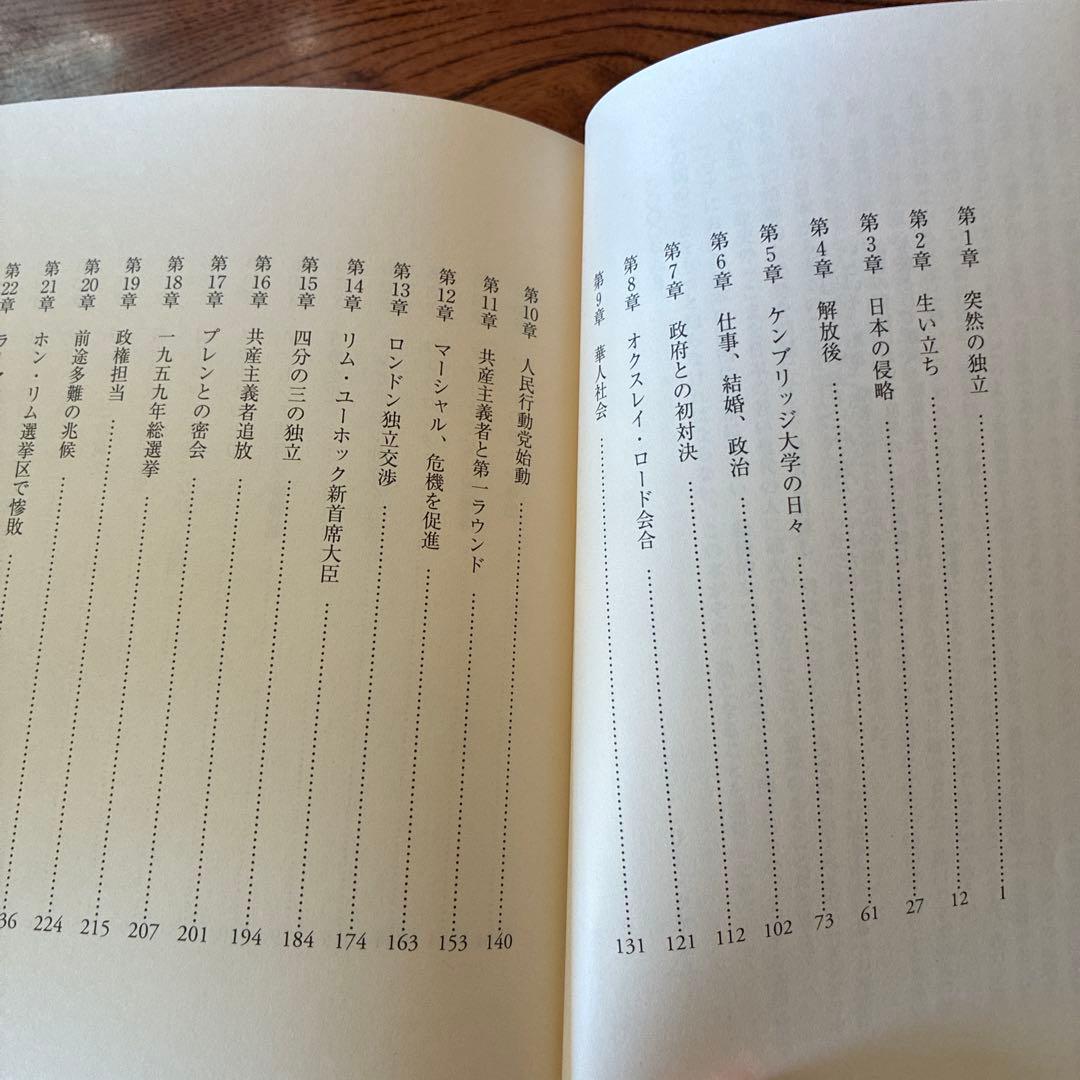 第1章 突然の独立 1
第2章 生い立ち 12
第3章 日本の侵略 27
第4章 解放後 61
第5章 ケンブリッジ大学の日々 73
第6章 仕事、結婚、政治 102
第7章 政府との初対決 112
第8章 オクスレイ・ロード会合 121
第9章 華人社会 131
第10章 人民行動党始動 140
第11章 共産主義者と第一ラウンド 153
第12章 マーシャル、危機を促進 163
第13章 ロンドン独立交渉 174
第14章 リム・ユーホック新首席大臣 184
第15章 四分の三の独立 194
第16章 共産主義者追放 201
第17章 プレンとの密会 207
第18章 一九五九年総選挙 215
第19章 政権担当 224
第20章 前途多難の兆候 36
第21章 ホン・リム選挙区で惨敗
第22章